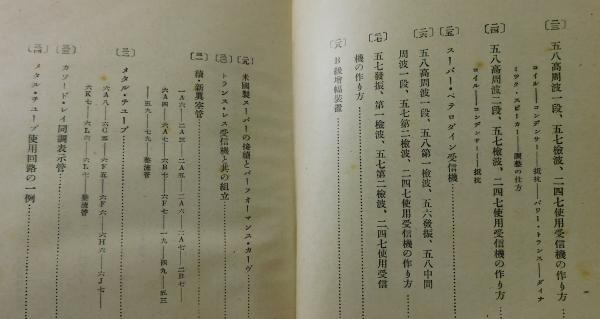 〔三〕 五八高周波一段、五七檢波、二四七使用受信機の作り方
コイル——コンデンサー——抵抗——パワー・トランス——ダイナ
ミツク・スピーカー——調整の仕方
〔四〕 五八高周波二段、五七檢波、二四七使用受信機の作り方
コイル——コンデンサー——抵抗
〔五〕 スーパー・ヘテロダイン受信機
〔六〕 五八高周波一段、五八第一檢波、五六發振、五八中間
周波一段、五七第二檢波、二四七使用受信機の作り方
〔七〕 五七發振、第一檢波、五七第二檢波、二四七使用受信
機の作り方
〔八〕 B級增幅裝置
〔元〕 米國製スーパーの接續とパーフオーマンス・カーヴ
〔三〕 トランス・レス受信機と其の組立
〔三〕 續・新眞空管
一A六——二A三——二A五——二A六——二A七——二B七——
六A四——六A七——六B七——六F七——一九——四九——五三
——五九——七九——整流管
〔三〕 メタル・チューブ
六A八——六C五——六F五——六F六——六H六——六J七——
六K七——六L六——六L七——整流管
〔三〕 カソード・レイ同調表示管
〔三〕 メタル・チューブ使用回路の一例